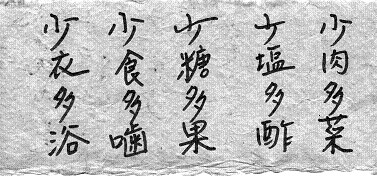 少肉多菜
少塩多酢
少糖多果
少食多噛
少衣多浴